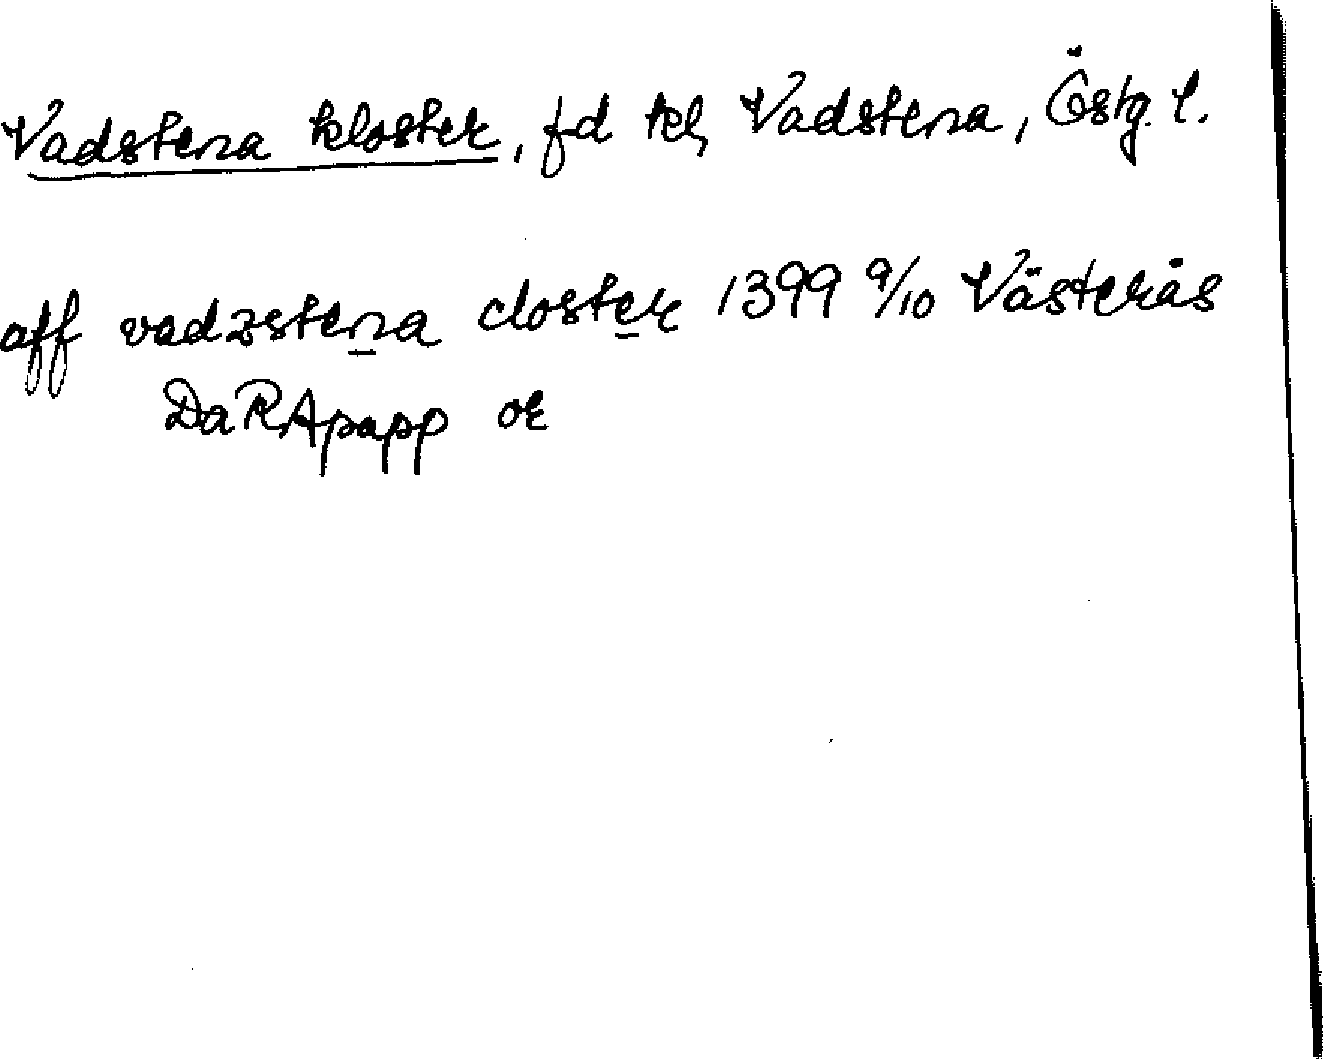 Vadstena kloster, fd kl, Vadstena, Östg. l.
aff vadzstena closter 1399 9/10 Västerås
DaRApapp or